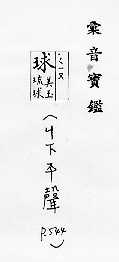 彙音寶鑑
球 美玉
琉球
(ㄐ下平聲
P.544)